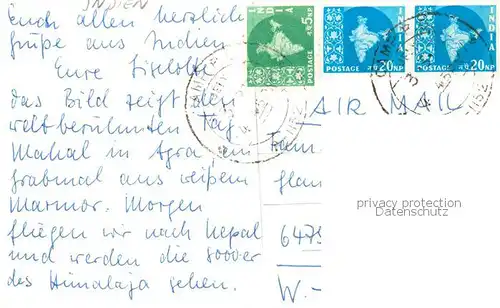 INDIEN
Euch allen herzlich
grüße aus Indien
Eure Liselotte
das Bild zeigt den
weltberühmten Taj
Mahal in Agra, ein
Grabmal aus weißem
Marmor. Morgen
fliegen wir nach Nepal
und werden die 8000er
des Himalaja sehen.
INDIA
5 NP
POSTAGE
INDIA
20 NP
POSTAGE
INDIA
20 NP
POSTAGE
AIR MAIL
Fam.
privacy protection
Datenschutz
6479
W.-